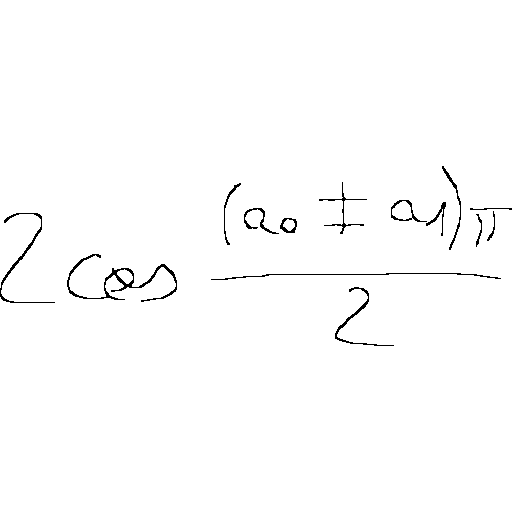 2 cos \frac{(a_0 \pm a_1)\pi}{2}